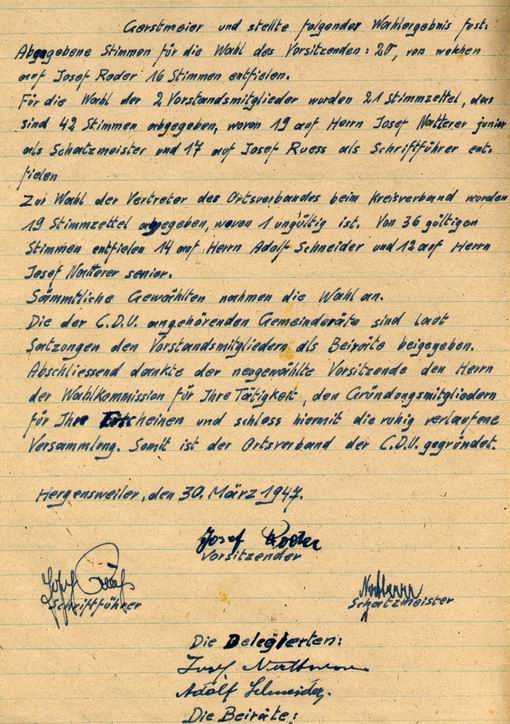 Gerstmeier und stellte folgendes Wahlergebnis fest.
Abgegebene Stimmen für die Wahl des Vorsitzenden: 20, von welchen
auf Josef Roder 16 Stimmen entfielen.
Für die Wahl der 2 Vorstandsmitglieder wurden 21 Stimmzettel, das
sind 42 Stimmen abgegeben, wovon 19 auf Herrn Josef Natterer junior
als Schatzmeister und 17 auf Josef Ruess als Schriftführer ent-
fielen
Zur Wahl der Vertreter des Ortsverbandes beim Kreisverband wurden
19 Stimmzettel abgegeben, wovon 1 ungültig ist. Von 36 gültigen
Stimmen entfielen 14 auf Herrn Adolf Schneider und 12 auf Herrn
Josef Natterer senior.
Sämmtliche Gewählten nahmen die Wahl an.
Die der C.D.U. angehörenden Gemeinderäte sind laut
Satzungen den Vorstandsmitgliedern als Beiräte beigegeben.
Abschliessend dankte der neugewählte Vorsitzende den Herrn
der Wahlkommission für Ihre Tätigkeit, den Gründungsmitgliedern
für Ihre Erscheinen und schloss hiermit die ruhig verlaufene
Versammlung. Somit ist der Ortsverband der C.D.U. gegründet.
Hergensweiler, den 30. März 1947.
Josef Roder
Vorsitzender
Josef Rueß
Schriftführer
Natterer
Schatzmeister
Die Delegierten:
Josef Natterer
Adolf Schneider.
Die Beiräte: